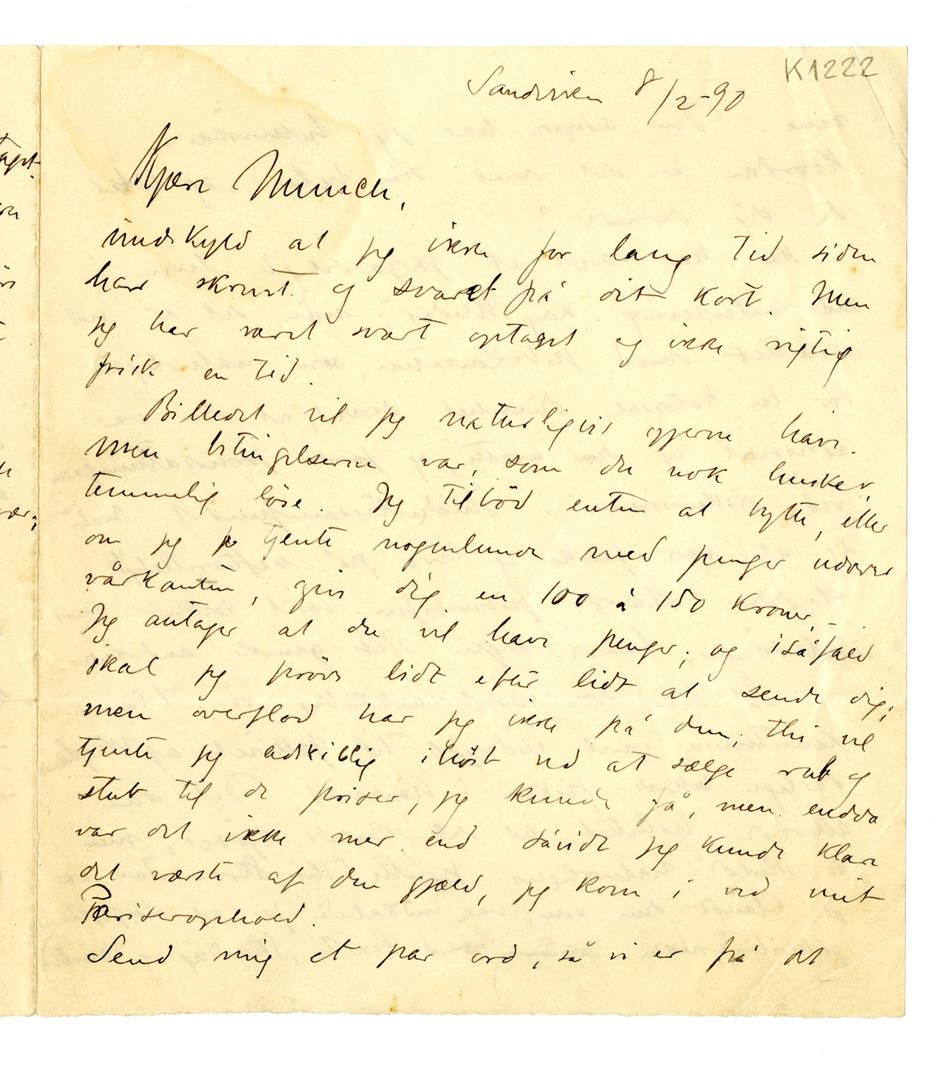 K1222
Sandviken 8/2-90
Kjære Munch,
undskyld at jeg ikke for lang tid siden
har skrevet og svaret på dit kort. Men
jeg har været svært optaget og ikke rigtig
frisk en tid.
Billedet vil jeg naturligvis gjerne have.
Men betingelserne var, som du nok husker,
temmelig løse. Jeg tilbød enten at bytte, eller
om jeg tjente nogenlunde med penger udover
vårkanten, give dig en 100 à 150 Kroner. –
Jeg antager at du vil have penger; og isåfald
skal jeg prøve lidt efter lidt at sende dig;
men overflod har jeg ikke på dem; thi vel
tjente jeg adskillig ihøst ved at sælge rub og
stub til de priser, jeg kunde få, men endda
var det ikke mer end såvidt jeg kunde klare
det værste af den gjæld, jeg kom i ved mit
Pariserophold.
Send mig et par ord, så vi er på det